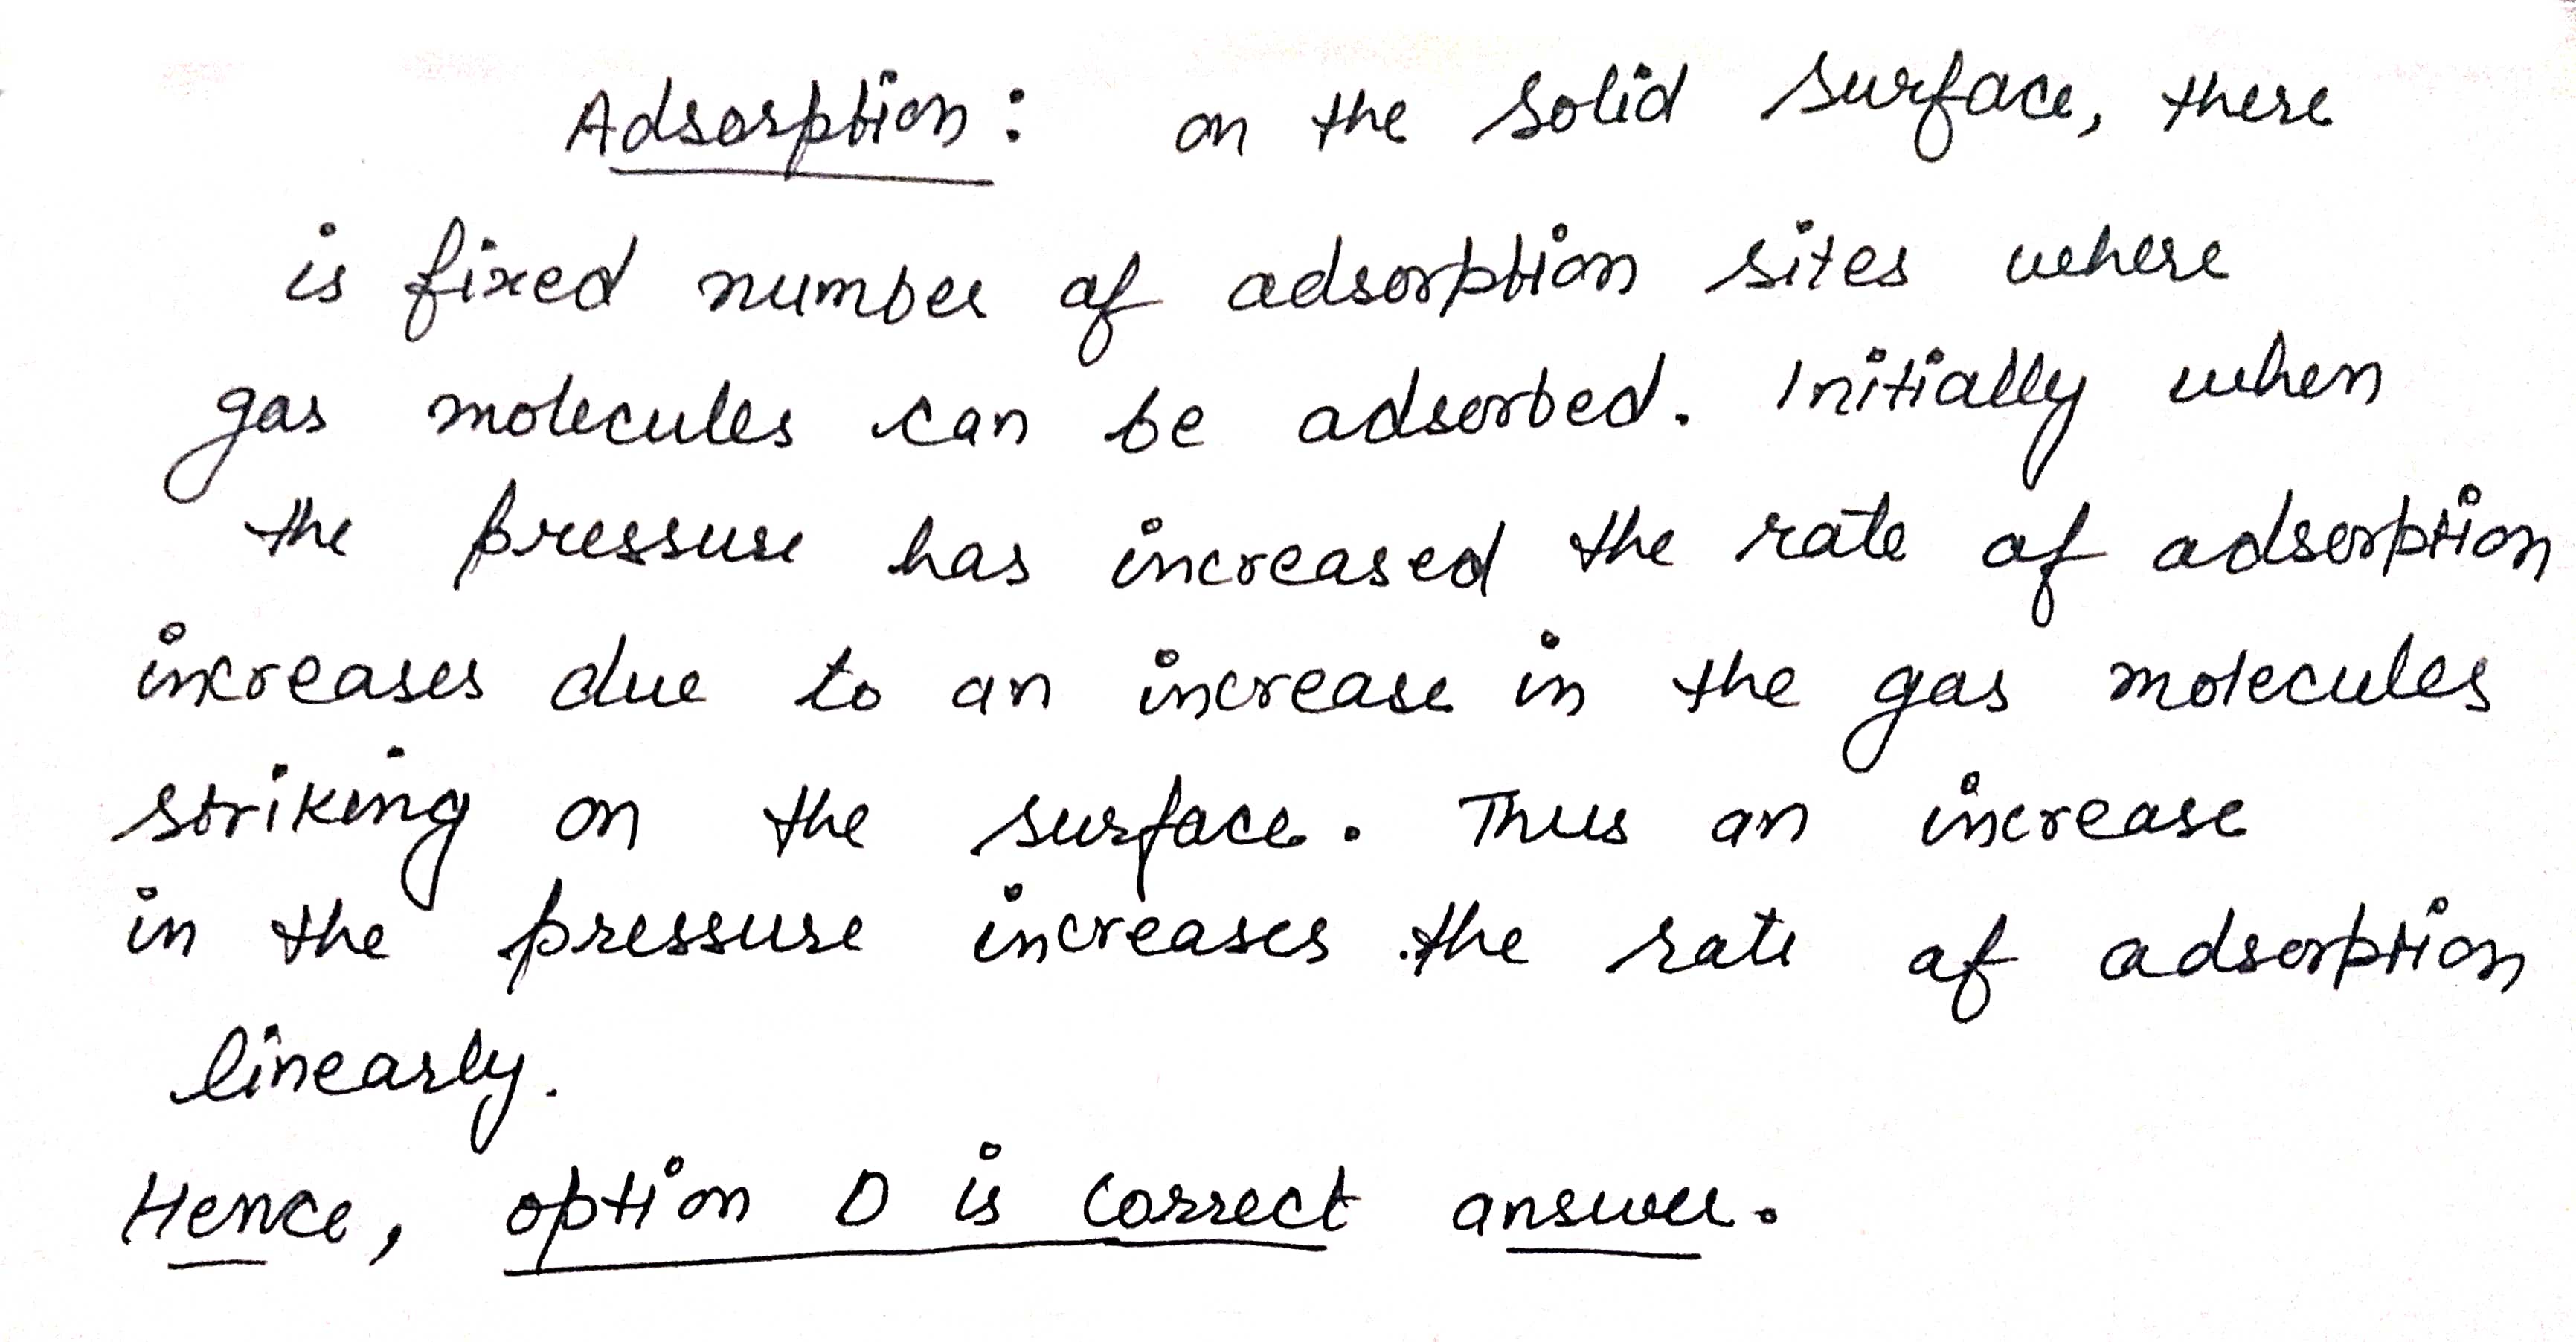 Adsorption: on the solid surface, there
is fixed number of adsorption sites where
gas molecules can be adsorbed. Initially when
the pressure has increased the rate of adsorption
increases due to an increase in the gas molecules
striking on the surface. Thus an increase
in the pressure increases the rate of adsorption
linearly.
Hence, option D is correct answer.